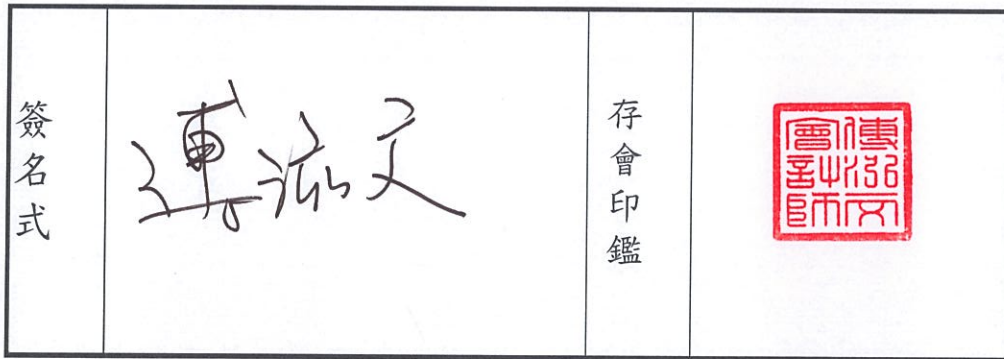 簽名式
傅泓文
存會印鑑
傅泓文
會計師